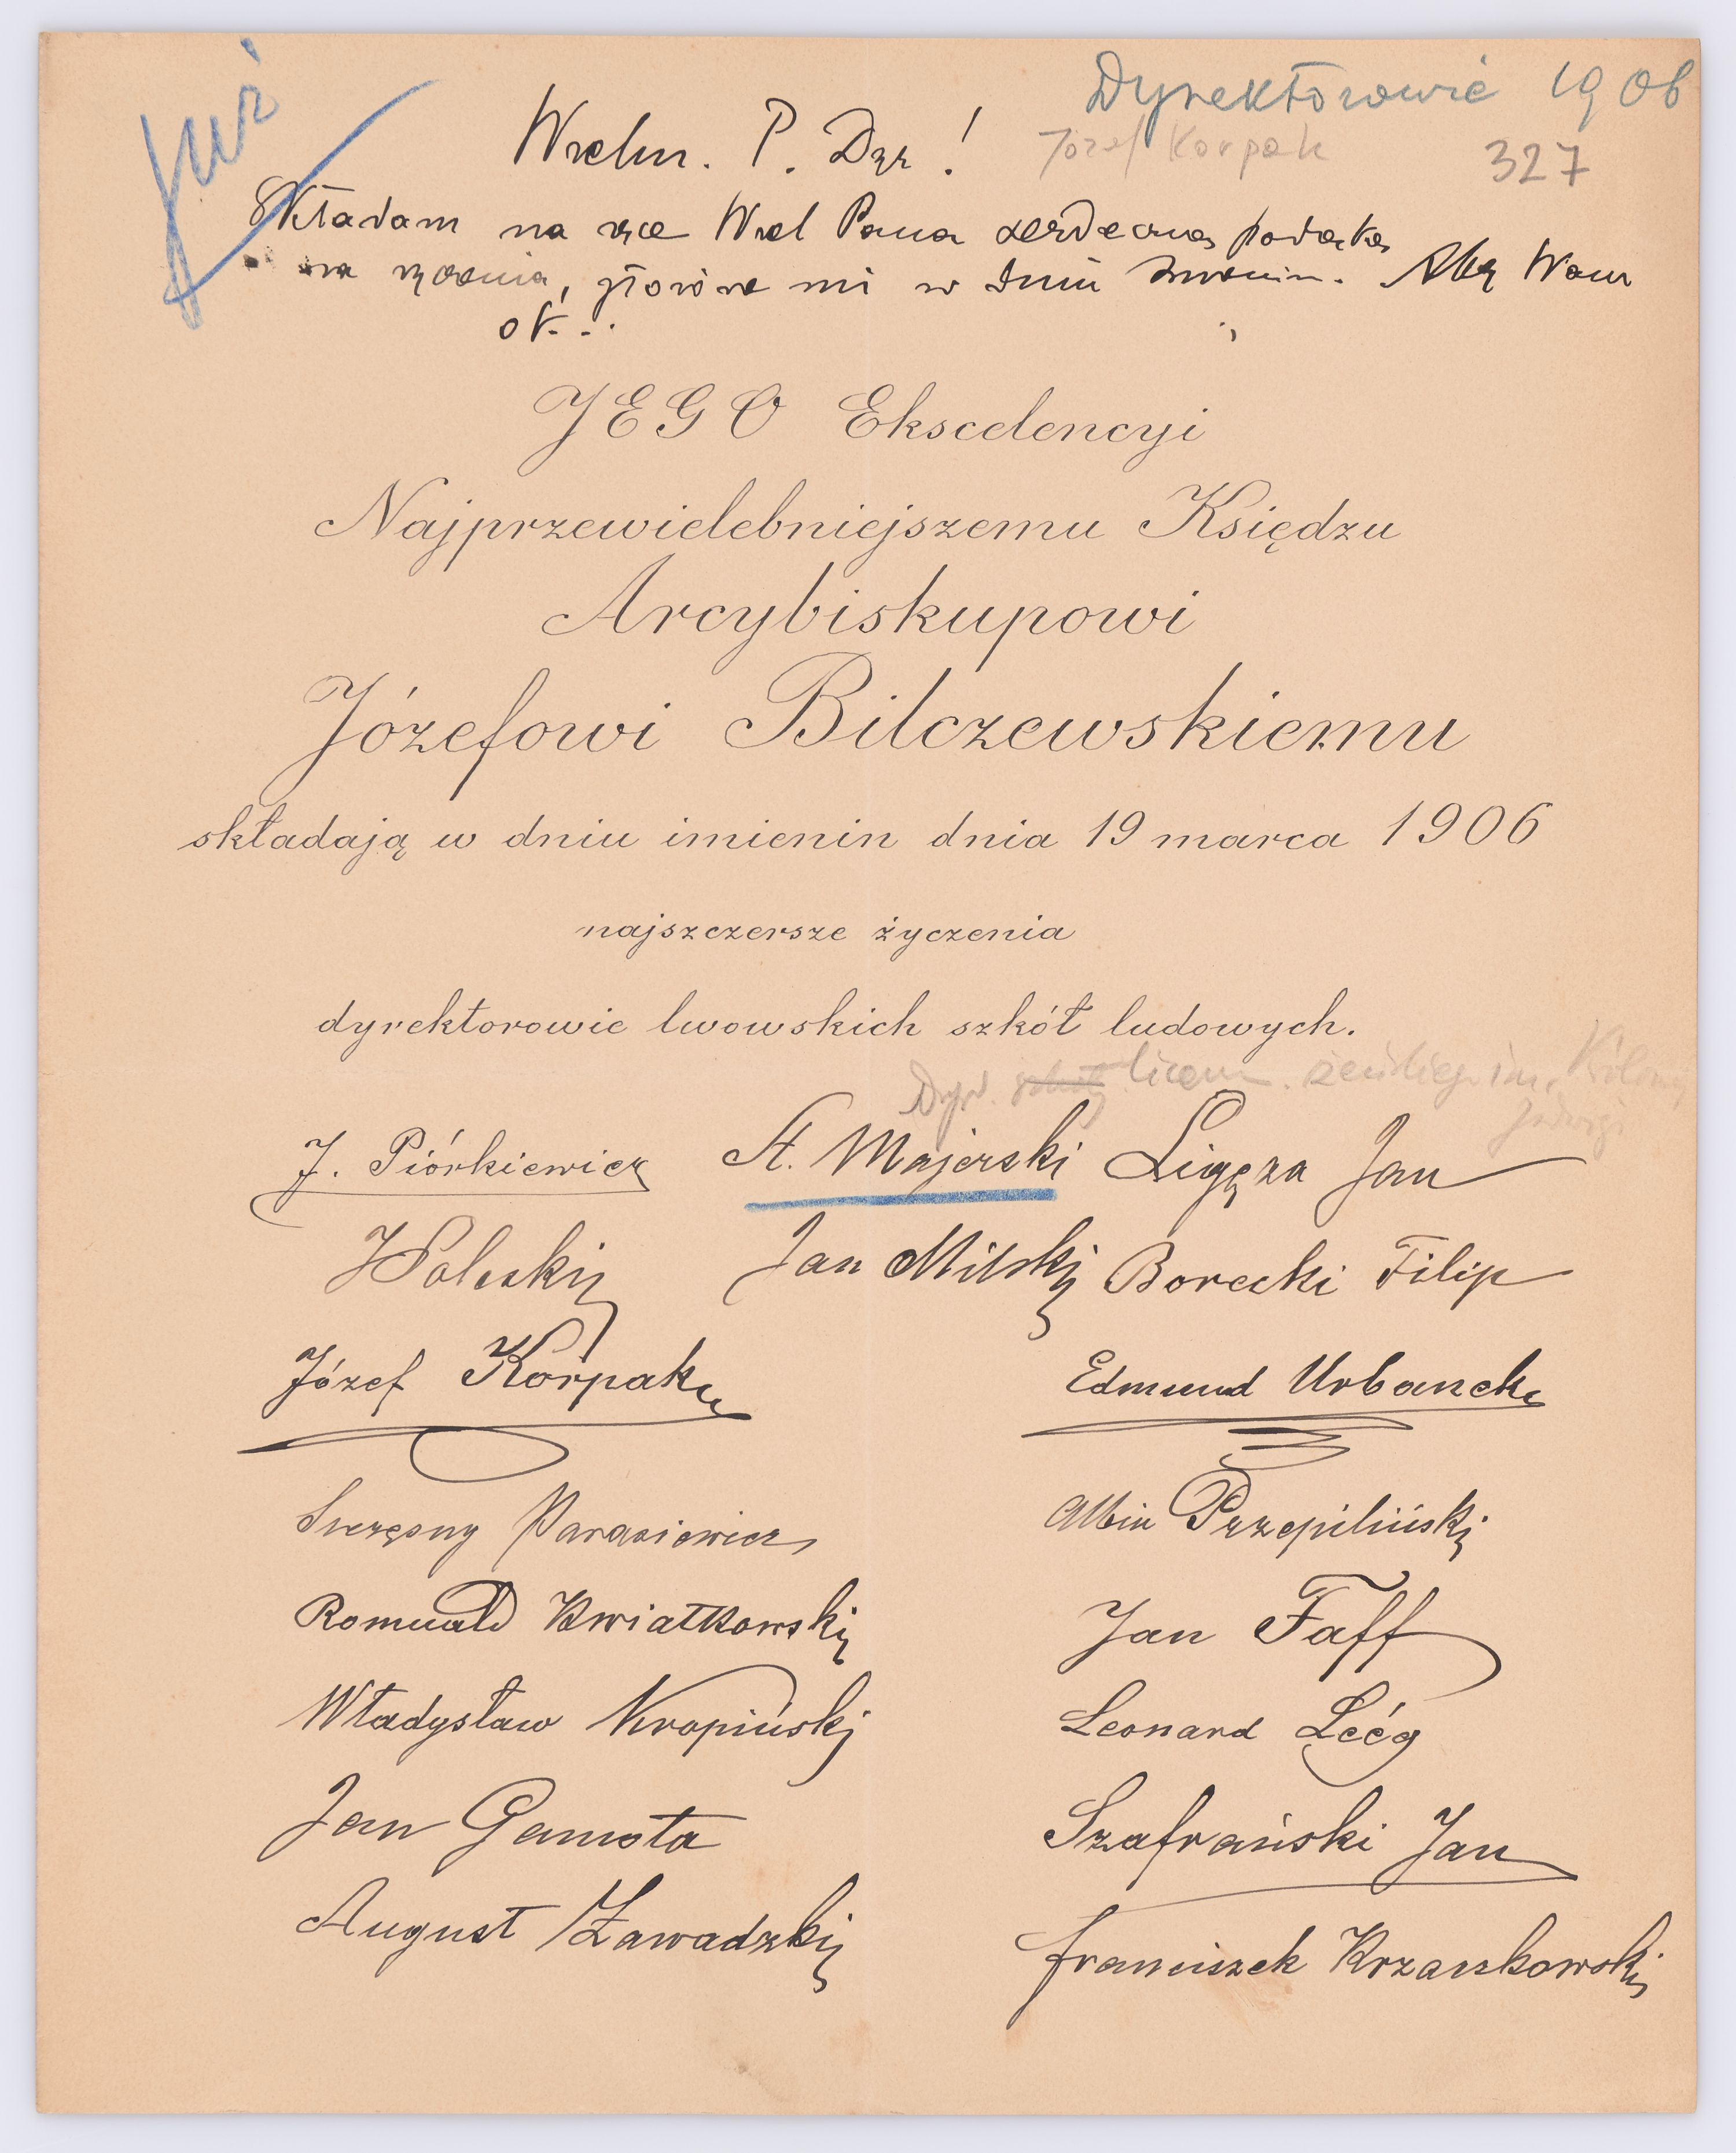 Już
Dyrektorowie 1906
Wielm. P. Dyr!
Józef Korpak
327
Składam na ręce Wiel Pana serdeczną podziękę
na życzenia, złożone mi w dniu imienin. Aby Wam
JEGO Ekscelencyi
Najprzewielebniejszemu Księdzu
Arcybiskupowi
Józefowi Bilczewskiemu
składają w dniu imienin dnia 19 marca 1906
najszczersze życzenia
dyrektorowie lwowskich szkół ludowych.
Dyr. liceum żeńskiego im. Królowej
Jadwigi
J. Piórkiewicz St. Majerski Ligęza Jan
Jan Milski Borecki Filip
Józef Korpak Edmund Urbanek
Szczęsny Parasiewicz Albin Przepiliński
Romuald Kwiatkowski Jan Faff
Władysław Kropiński Leonard
Jan Gamota Szafrański Jan
August Zawadzki Franciszek Krzaszkowski